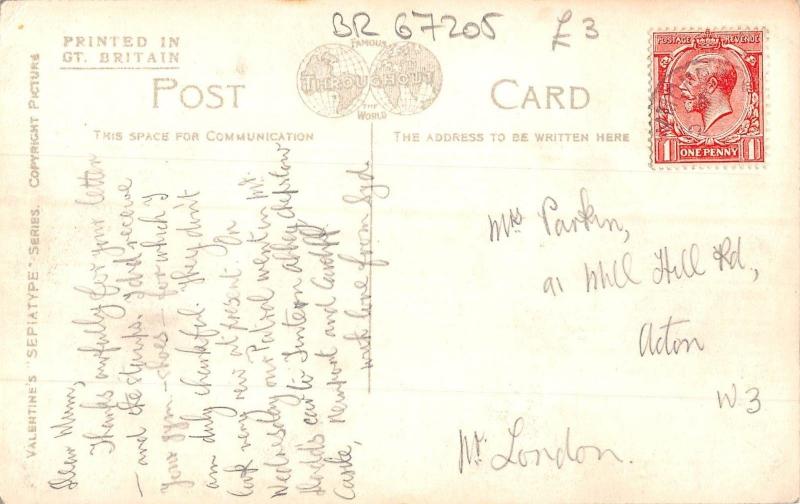 BR 67205 £3
PRINTED IN
GT. BRITAIN
FAMOUS
THROUGHOUT
THE
WORLD
POST CARD
THIS SPACE FOR COMMUNICATION
THE ADDRESS TO BE WRITTEN HERE
VALENTINE'S "SEPIATYPE" SERIES. COPYRIGHT PICTURE
POSTAGE REVENUE
1 ONE PENNY 1
Dear Mum,
Thanks awfully for your letter
– and the stamps. I did receive
your gym – shoes – for which I
am duly thankful. They don't
look very new at present. On
Wednesday our Patrol went in Mr.
car to Tintern abbey, Chepstow
Castle, Newport and Cardiff
with love from Syd.
Mrs Parkin,
91 Mill Hill Rd,
Acton
W3
Nr. London.